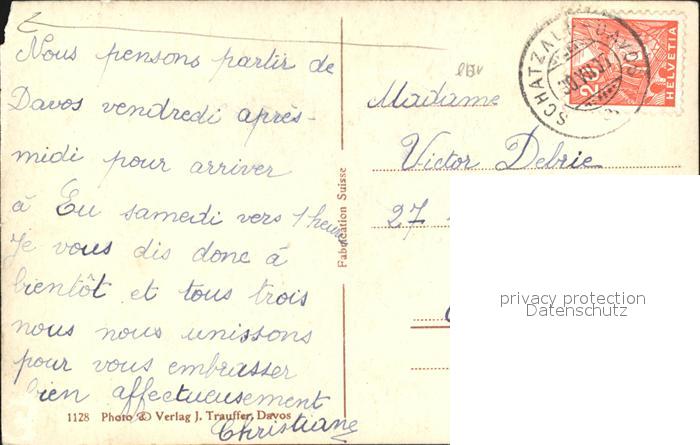 Nous pensons partir de
Davos vendredi après-
midi pour arriver
à Eu samedi vers 1 heure
Je vous dis donc à
bientôt et tous trois
nous nous unissons
pour vous embrasser
bien affectueusement
Christiane
1128 Photo & Verlag J. Trauffer, Davos
Fabrication Suisse
Madame
Victor Debrie
27
SCHATZALP DAVOS
20
HELVETIA
privacy protection
Datenschutz